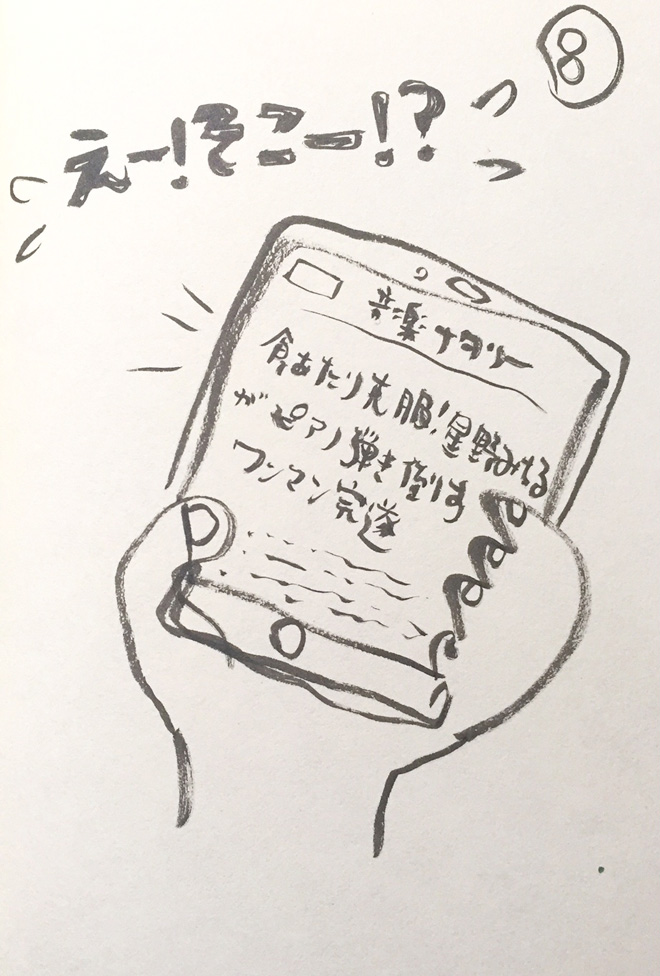 ⑧
えー!そこー!?
音楽ナタリー
食あたり克服!星野みちる
がピアノ弾き倒す
ワンマン完遂